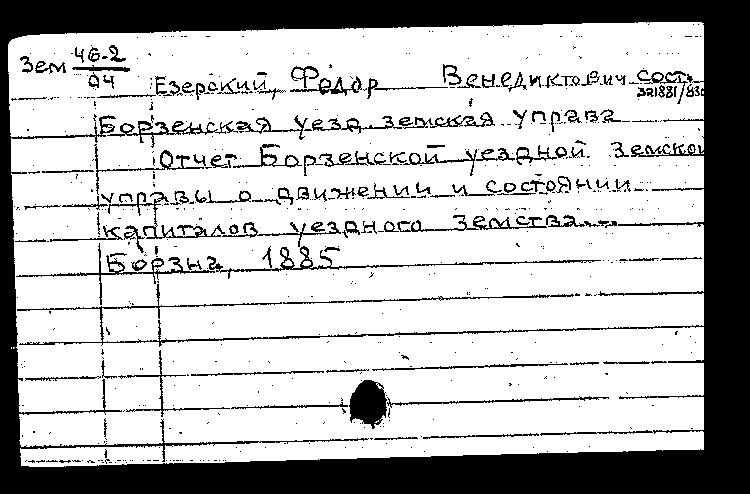 Зем 46-2
94
Езерский, Фёдор Венедиктович сост.
Борзенская уезд. земская управа
Отчет Борзенской уездной Земской
управы о движении и состоянии
капиталов уездного земства...
Борзна, 1885